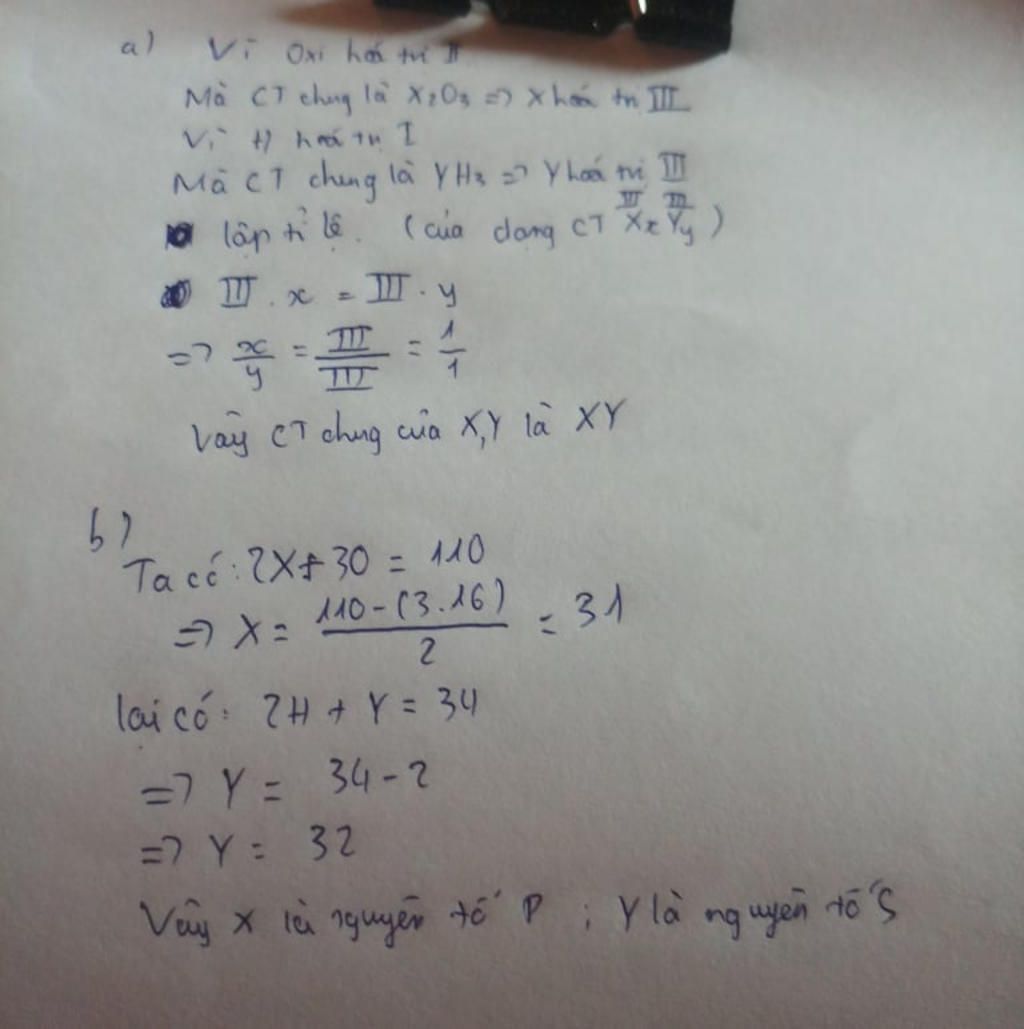 a) Vì Oxi hoá trị II
Mà CT chung là X₂O₃ => X hoá trị III
Vì H hoá trị I
Mà CT chung là YH₃ => Y hoá trị III
lập tỉ lệ. (của dạng CT X^III_x Y^III_y)
III . x = III . y
=> x/y = III/III = 1/1
Vậy CT chung của X,Y là XY
b)
Ta có: 2X + 3O = 110
=> X = (110 - (3.16))/2 = 31
lại có: 2H + Y = 34
=> Y = 34 - 2
=> Y = 32
Vậy X là nguyên tố P ; Y là nguyên tố S